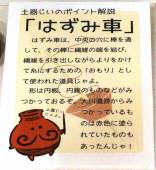 土器じいのポイント解説
「はずみ車」
はずみ車は、中央の穴に棒を通
して、その棒に繊維の端を結び、
繊維を引き出しながらよりをかけ
て糸にするための「おもり」とし
て使われた道具じゃよ。
形は円板、円錐のものなどが
みつかっておるぞ。大川遺跡から
みつかっているも
のは赤色に塗ら
れていたものも
あったんじゃ！